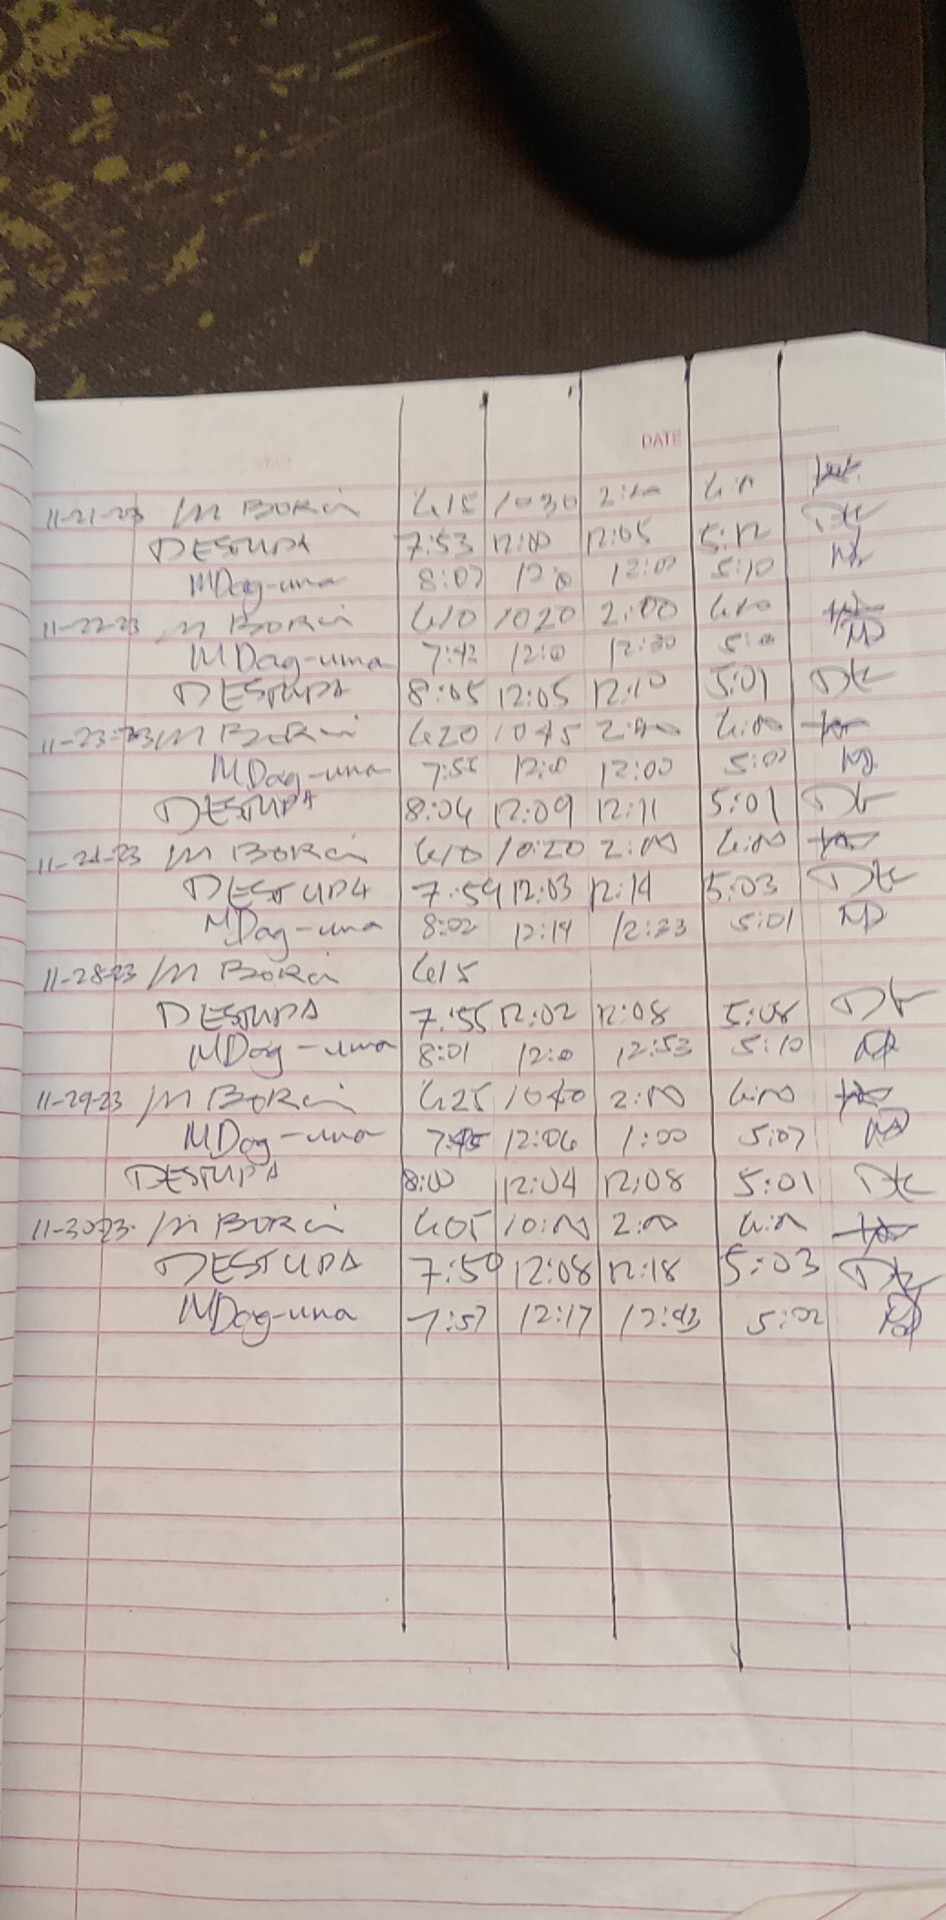 DATE
11-21-23 M Borci 615 1030 2:00 6:00
DESTUPA 7:53 12:00 12:05 5:12
MDag-uma 8:07 12:0 12:07 5:10
11-22-23 M Borci 610 1020 2:00 610
MDag-uma 7:42 12:0 12:30 5:0 MD
DESTUPA 8:05 12:05 12:10 5:01
11-23-23 M Borci 620 1045 2:00 6:00
MDag-uma 12:0 12:00 5:07 MD
DESTUPA 8:04 12:09 12:11 5:01
11-24-23 M Borci 610 10:20 2:00 6:00
DESTUPA 7:59 12:03 12:14 5:03
MDag-uma 8:02 12:14 12:33 5:01 MD
11-28-23 M Borci 615
DESTUPA 7:55 12:02 12:08 5:08
MDag-uma 8:01 12:0 12:53 5:10
11-29-23 M Borci 625 1040 2:00 6:00
MDag-uma 7:45 12:06 1:00 5:07 MD
DESTUPA 8:00 12:04 12:08 5:01
11-30-23. M Borci 605 10:00 2:00 6:00
DESTUPA 7:50 12:08 12:18 5:03
MDag-uma 7:57 12:17 12:43 5:02